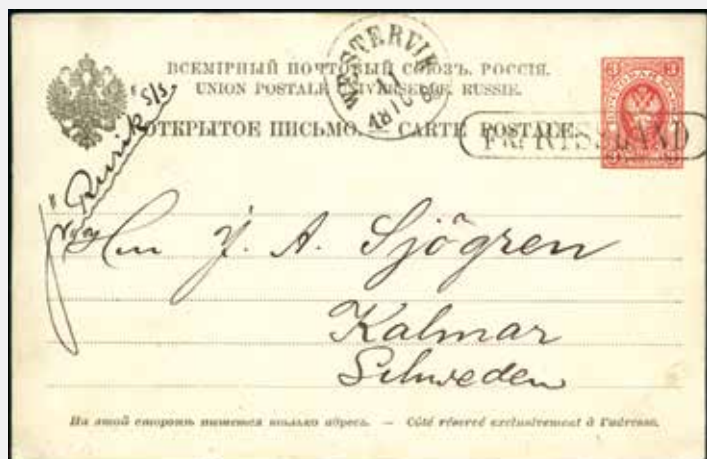 ВСЕМІРНЫЙ ПОЧТОВЫЙ СОЮЗЪ. РОССІЯ.
UNION POSTALE UNIVERSELLE. RUSSIE.
ОТКРЫТОЕ ПИСЬМО. — CARTE POSTALE.
WESTERVIK
3 3
FRÅN RYSSLAND
"Rurik" S/S.
J. A. Sjögren
Kalmar
Schweden
На этой сторонѣ пишется только адресъ. — Côté réservé exclusivement à l'adresse.